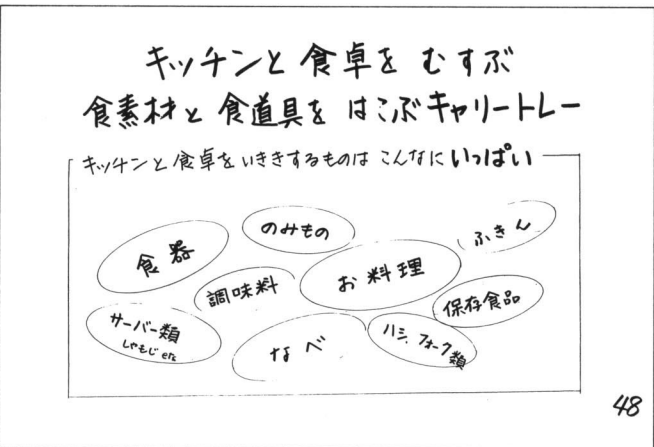 キッチンと食卓をむすぶ
食素材と食道具をはこぶキャリートレー
キッチンと食卓をいききするものはこんなにいっぱい
のみもの
ふきん
食器
お料理
調味料
保存食品
サーバー類
しゃもじ etc
なべ
ハシ、フォーク類
48